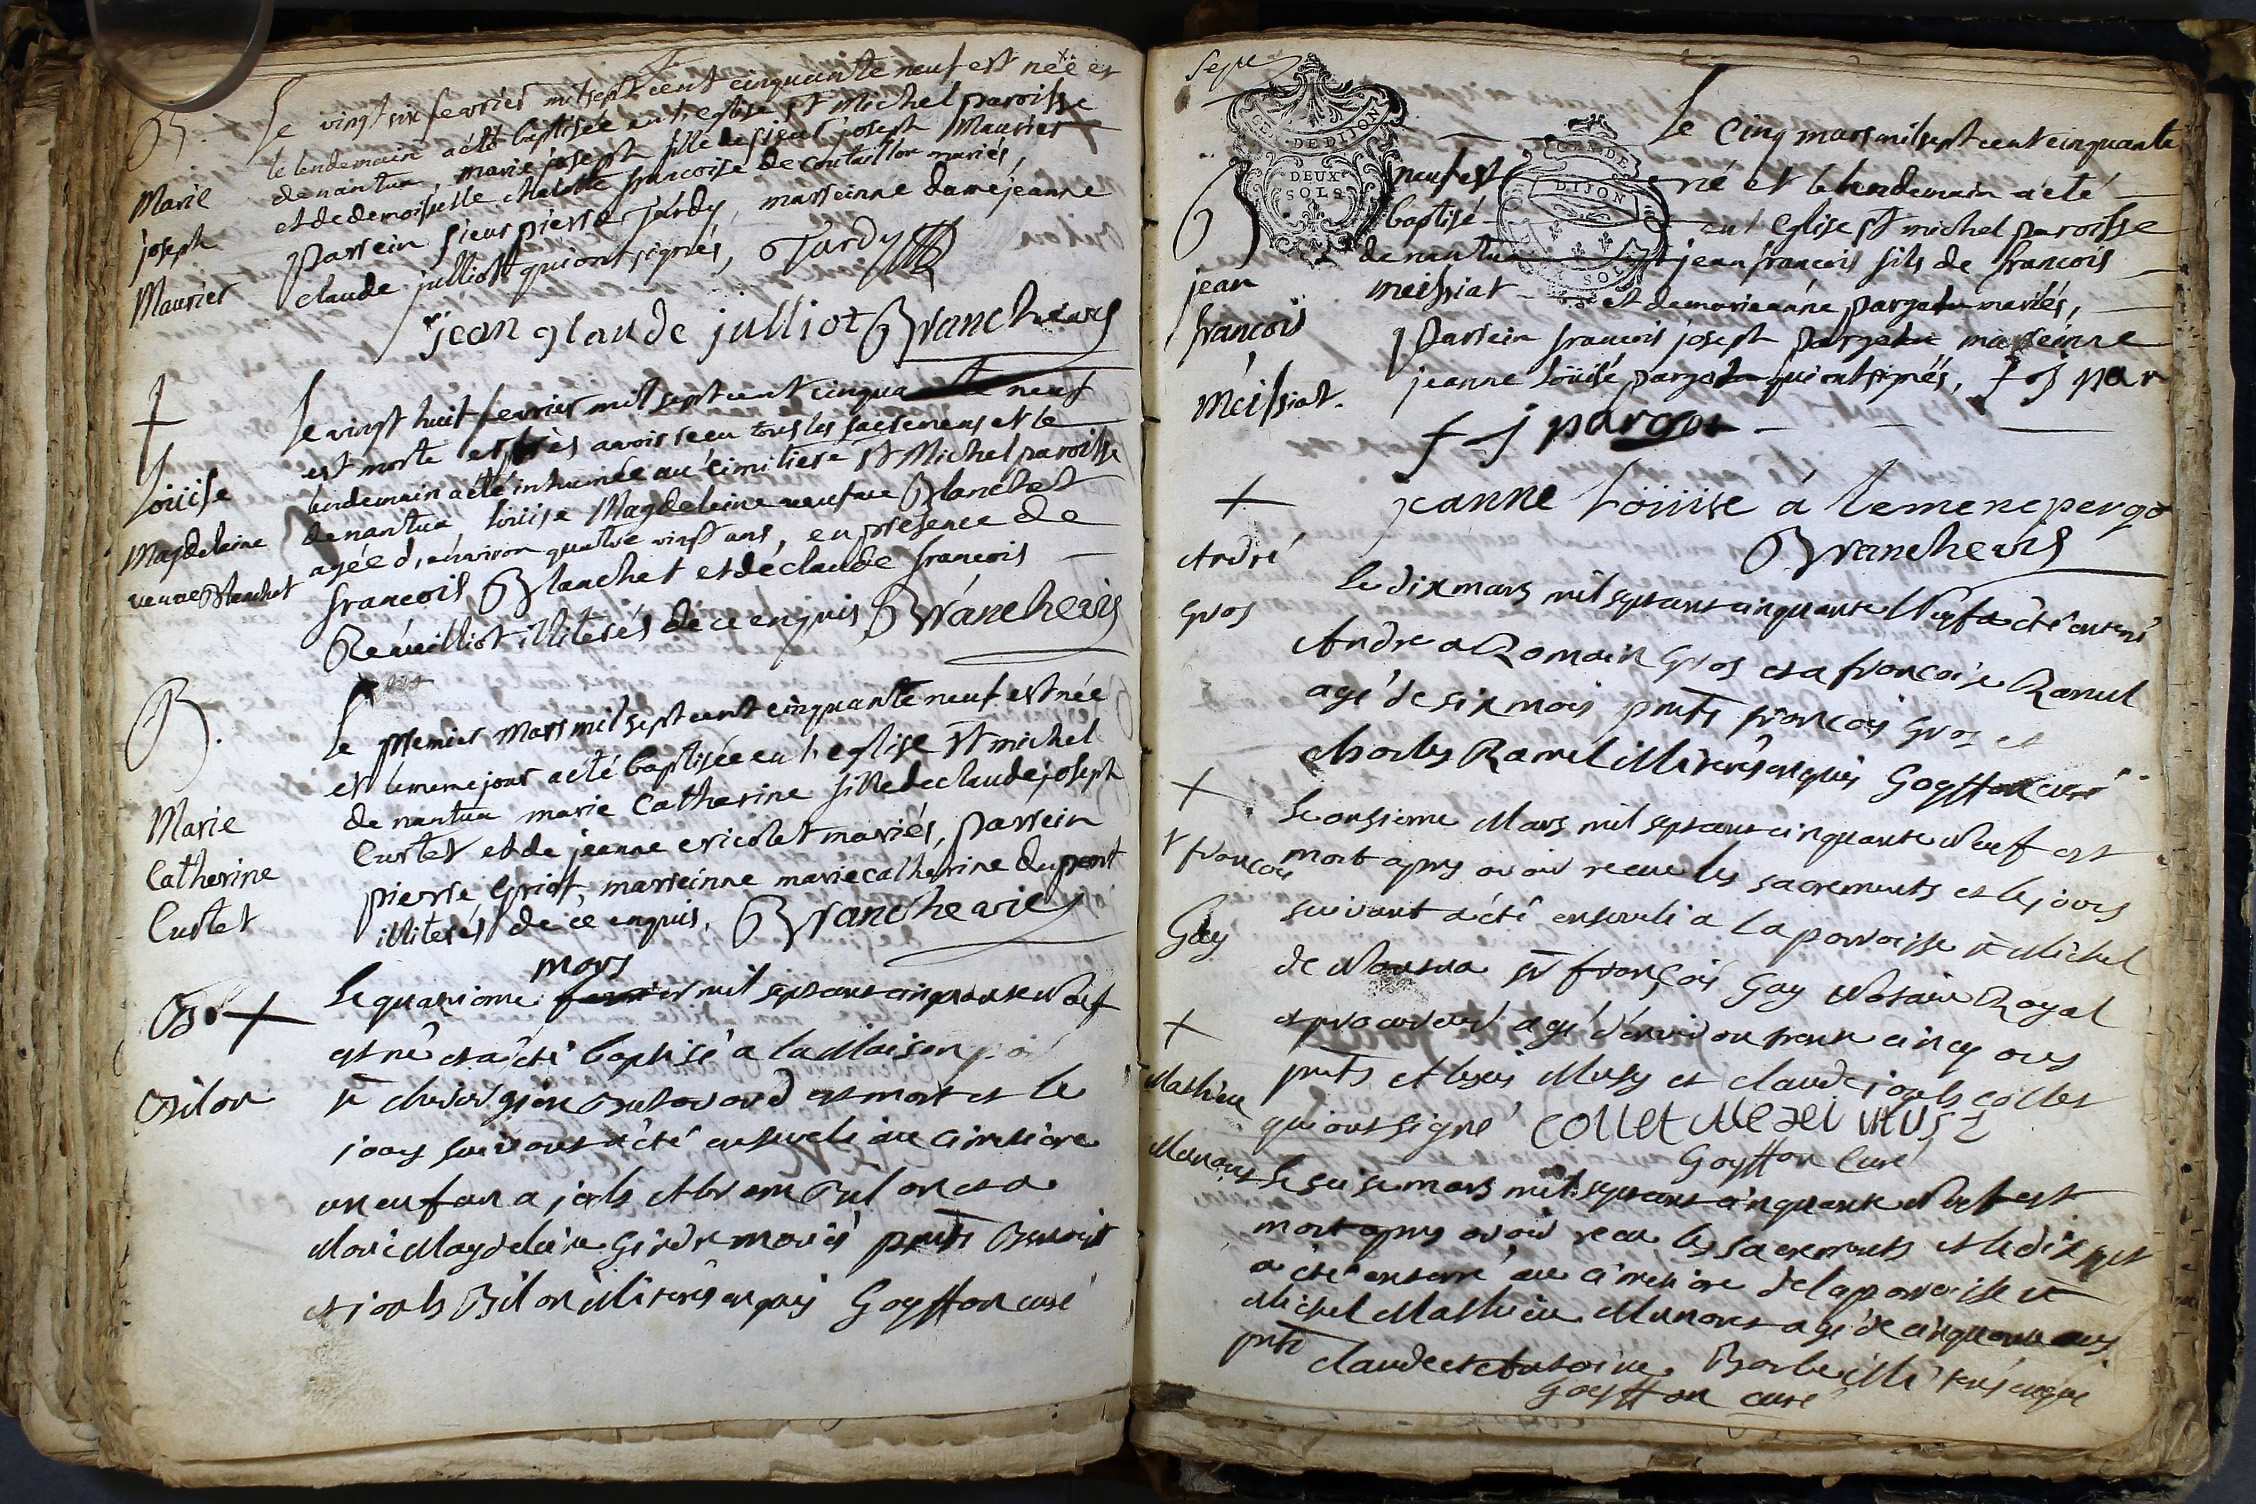 B.
Marie
joseph
Maurier
Le vingt six fevrier mil sept cent cinquante neuf est née et
le lendemain a été baptisée en l'eglise st Michel paroisse
de nantua, marie joseph fille de sieur joseph Maurier
et de demoiselle charlotte francoise de coutaillon mariés,
parrein sieur pierre Tardy, marreinne dame jeanne
claude julliot qui ont signés, Tardy
jean glaude julliot Brancheavis
Loüise
Magdeleine
veuve Blanchet
Le vingt huit fevrier mil sept cent cinquante neuf
est morte apres avoir receu tous les sacremens et le
lendemain a été inhumée au cimitiere st Michel paroisse
de nantua loüise Magdeleine veufve Blanchet
agée d'environ quattre vingt ans, en presence de
francois Blanchet et de claude francois
Reveilliot illiterés de ce enquis Brancheavis
B.
Marie
Catherine
Curtet
Le premier Mars mil sept cent cinquante neuf est née
et le meme jour a été baptisée en l'eglise st michel
de nantua marie Catherine fille de claude joseph
Curtet et de jeanne ericolet mariés, parrein
pierre Griot, marreinne marie catherine dupont
illiterés de ce enquis, Brancheavis
B. +
Bilon
mars
Le quatrieme fevrier mil sept cent cinquante Neuf
est né et a été baptisé a la Maison par
sr chirurgien est mort et le
jour suivant a été enseveli au cimetiere
un enfan a josh Bilon et a
Marie Magdeleine Girdre mariés pnts Benoist
et josph Bilon illiterés enquis Goyffon curé
Sept
GEN. DE DIJON
DEUX
SOLS
GEN. DE
DIJON
SOL
B
jean
francois
Meissiat.
Le Cinq mars mil sept cent cinquante
neuf est né et le lendemain a été
baptisé en l'eglise st michel paroisse
de nantua jean francois fils de francois
meissiat et de marie anne pargot mariés,
parrein francois joseph pargot marreinne
jeanne loüise pargot qui ont signés, f j par
f j pargot
jeanne loüise á lemene pergo
Brancheavis
+
André
Gros
Le dix mars mil sept cent cinquante Neuf a été enterré
André a Romain Gros et a françoise Ramel
agé de six mois pnts françois Gros et
charles Ramel illiterés enquis Goyffon curé
+
sr françois
Gay
Le onzieme Mars mil sept cent cinquante Neuf est
mort apres avoir receu les sacrements et le jour
suivant a été enseveli a la parroisse st Michel
de Nantua sr françois Gay Notaire Royal
et procureur agé d'environ trente cinq ans
pnts Musy et claude josph collet
qui ont signé COllet Musy
Goyffon Curé
+
Mathieu
Munons
Le seise mars mil sept cent cinquante Neuf est
mort apres avoir receu les sacrements et le dix sept
a été enterré au cimetiere de la parroisse st
Michel Mathieu Munons agé de cinquante ans
pnts claude et antoine Barbe illiterés enquis
Goyffon curé